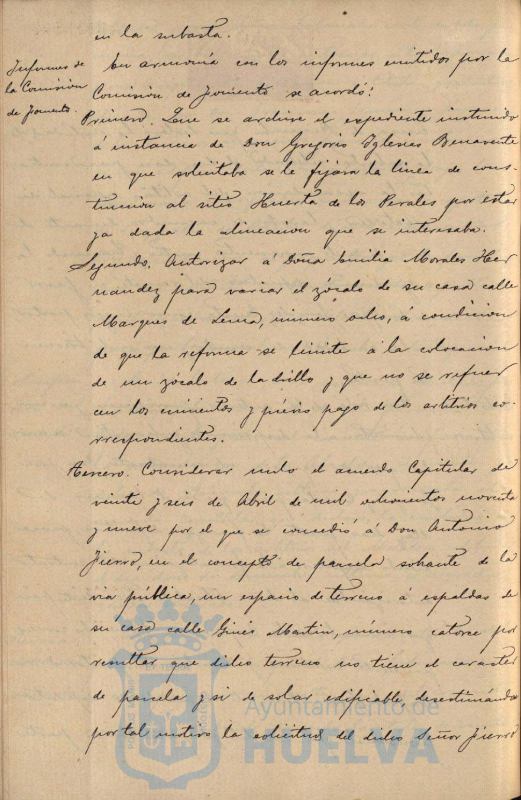 en la subasta.
Informes de
la Comisión
de Fomento.
En armonía con los informes emitidos por la
Comisión de Fomento se acordó:
Primero. Que se archive el expediente instruido
á instancia de Don Gregorio Yglesias Benavente
en que solicitaba se le fijára la linea de cons-
trucción al sitio Huerta de los Perales por estar
ya dada la alineacion que se interesaba.
Segundo. Autorizar á Doña Emilia Morales Her
nandez para variar el zócalo de su casa calle
Marques de Lema, número ocho, á condicion
de que la reforma se limite á la colocacion
de un zócalo de ladrillo y que no se refuer
cen los cimientos y prévio pago de los arbitrios co-
rrespondientes.
Tercero. Considerar nulo el acuerdo Capitular de
veinte y seis de Abril de mil ochocientos noventa
y nueve por el que se concedió á Don Antonio
Fierro, en el concepto de parcela sobrante de la
via pública, un espacio de terreno á espaldas de
su casa calle Ginés Martin, número catorce por
resultar que dicho terreno no tiene el caracter
de parcela y si de solar edificable desestimándo
por tal motivo la solicitud del dicho Señor Fierro
Ayuntamiento de
HUELVA